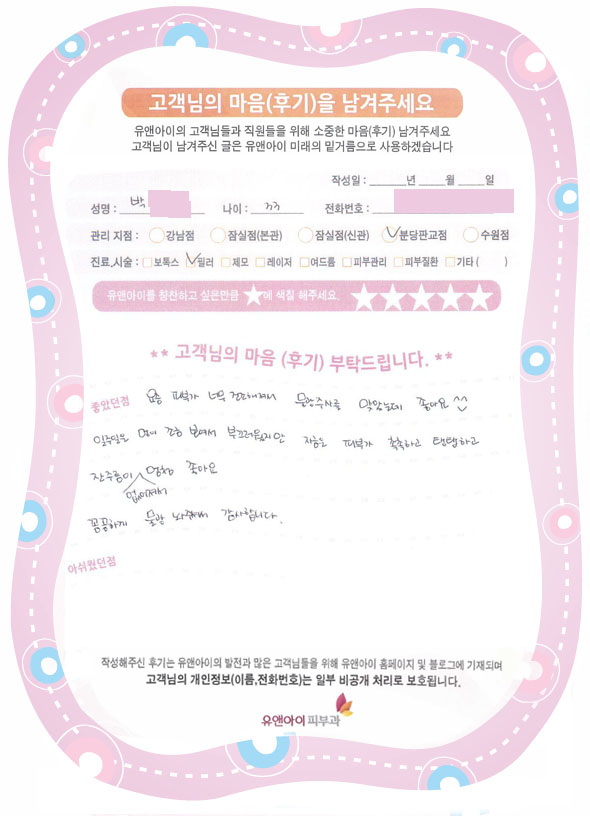 고객님의 마음(후기)을 남겨주세요
유앤아이의 고객님들과 직원들을 위해 소중한 마음(후기) 남겨주세요
고객님이 남겨주신 글은 유앤아이 미래의 밑거름으로 사용하겠습니다
작성일 : ______년 ____월 ____일
성명 : 박 나이 : 33 전화번호 :
관리 지점 : 강남점 잠실점(본관) 잠실점(신관) 분당판교점 수원점
진료,시술 : 보톡스 필러 제모 레이저 여드름 피부관리 피부질환 기타 ( )
유앤아이를 칭찬하고 싶은만큼 ★에 색칠 해주세요. ★★★★★
** 고객님의 마음 (후기) 부탁드립니다. **
좋았던점 요즘 피부가 너무 건조해져서 물광주사를 맞았는데 좋아요 ^^
일주일은 멍이 조금 보여서 부끄러웠지만 지금은 피부가 촉촉하고 탱탱하고
잔주름이 없어져서 엄청 좋아요
꼼꼼하게 물광 놔줘서 감사합니다.
아쉬웠던점
작성해주신 후기는 유앤아이의 발전과 많은 고객님들을 위해 유앤아이 홈페이지 및 블로그에 기재되며
고객님의 개인정보(이름,전화번호)는 일부 비공개 처리로 보호됩니다.
유앤아이피부과